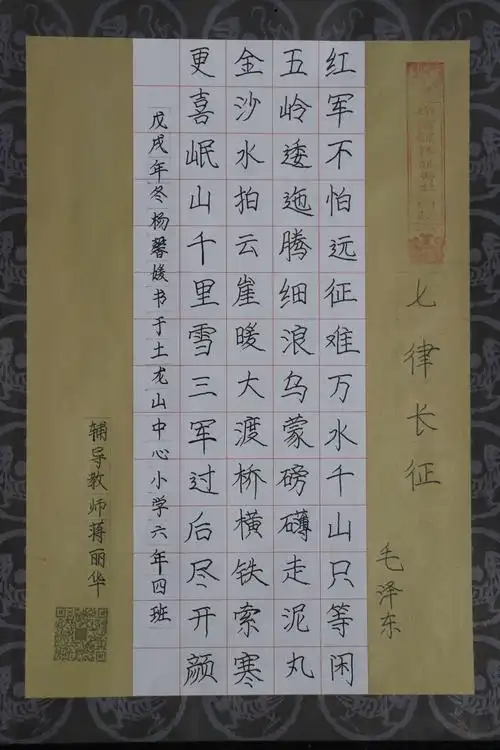 七律长征
毛泽东
红军不怕远征难万水千山只等闲
五岭逶迤腾细浪乌蒙磅礴走泥丸
金沙水拍云崖暖大渡桥横铁索寒
更喜岷山千里雪三军过后尽开颜
戊戌年冬杨馨媛书于土龙山中心小学六年四班
辅导教师蒋丽华